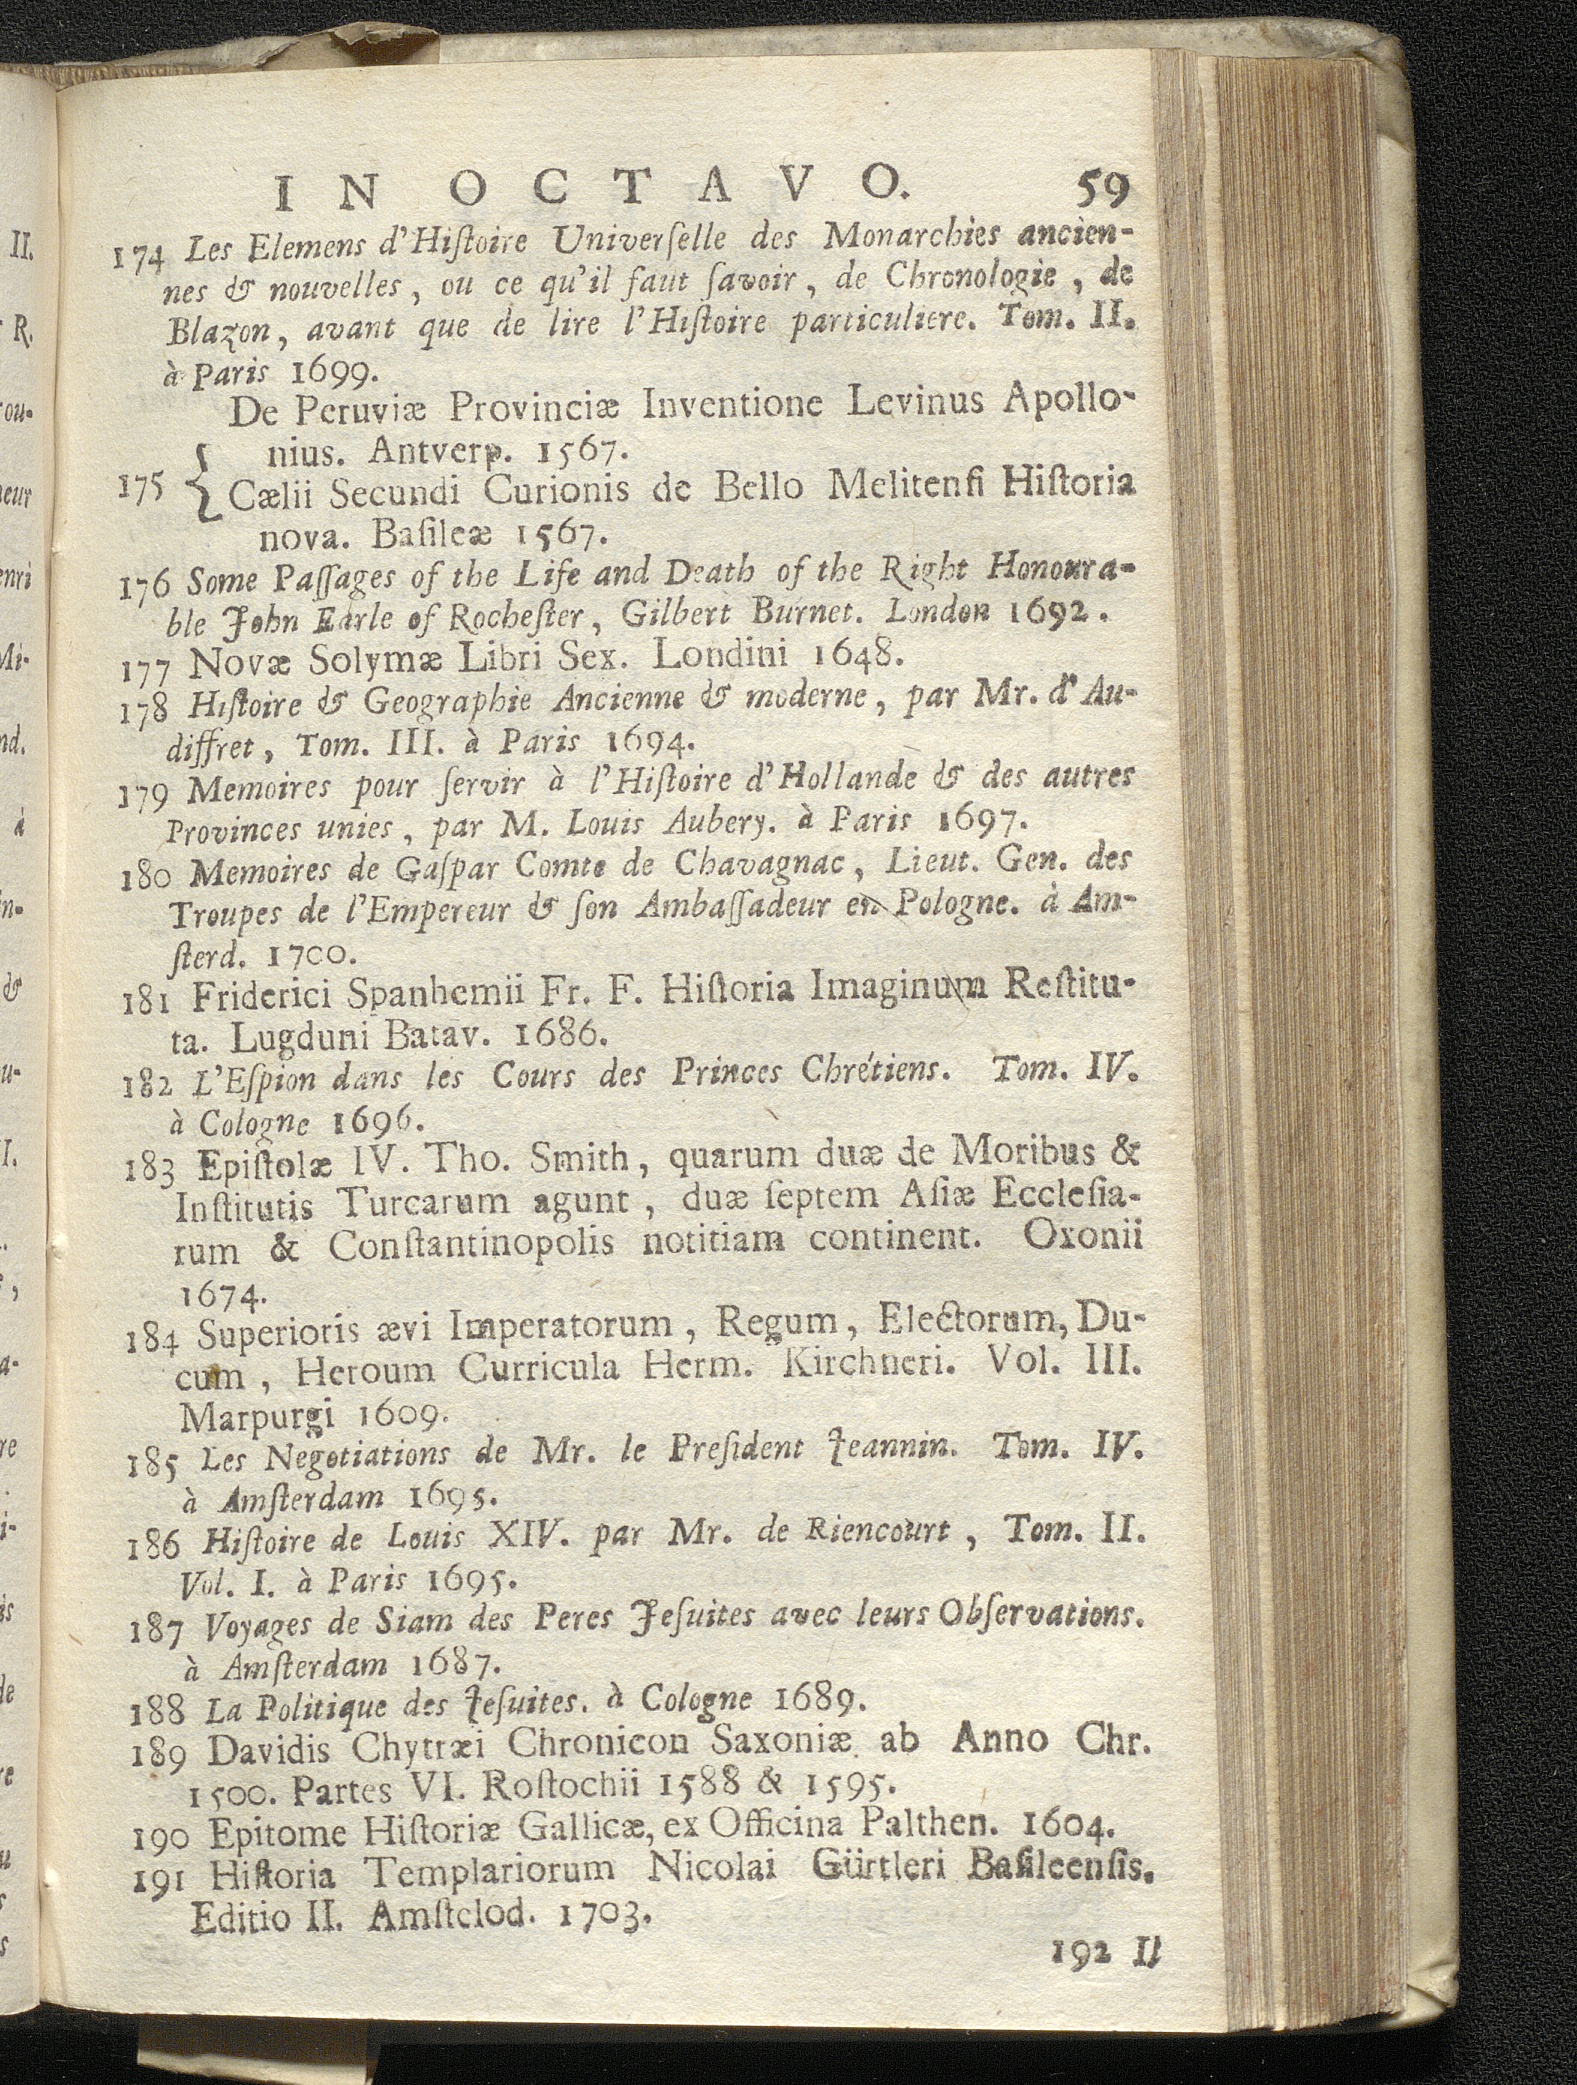 IN OCTAVO. 59
174 Les Elemens d'Hiſtoire Univerſelle des Monarchies ancien-
nes & nouvelles, ou ce qu'il faut ſavoir, de Chronologie, de
Blazon, avant que de lire l'Hiſtoire particuliere. Tom. II.
à Paris 1699.
De Peruviæ Provinciæ Inventione Levinus Apollo-
nius. Antverp. 1567.
175 { Cælii Secundi Curionis de Bello Melitenſi Hiſtoria
nova. Baſileæ 1567.
176 Some Paſſages of the Life and Death of the Right Honoura-
ble John Earle of Rocheſter, Gilbert Burnet. London 1692.
177 Novæ Solymæ Libri Sex. Londini 1648.
178 Hiſtoire & Geographie Ancienne & moderne, par Mr. d'Au-
diffret, Tom. III. à Paris 1694.
179 Memoires pour ſervir à l'Hiſtoire d'Hollande & des autres
Provinces unies, par M. Louis Aubery. à Paris 1697.
180 Memoires de Gaſpar Comte de Chavagnac, Lieut. Gen. des
Troupes de l'Empereur & ſon Ambaſſadeur en Pologne. à Am-
ſterd. 1700.
181 Friderici Spanhemii Fr. F. Hiſtoria Imaginum Reſtitu-
ta. Lugduni Batav. 1686.
182 L'Eſpion dans les Cours des Princes Chrétiens. Tom. IV.
à Cologne 1696.
183 Epiſtolæ IV. Tho. Smith, quarum duæ de Moribus &
Inſtitutis Turcarum agunt, duæ ſeptem Aſiæ Eccleſia-
rum & Conſtantinopolis notitiam continent. Oxonii
1674.
184 Superioris ævi Imperatorum, Regum, Electorum, Du-
cum, Heroum Curricula Herm. Kirchneri. Vol. III.
Marpurgi 1609.
185 Les Negotiations de Mr. le Preſident Jeannin. Tom. IV.
à Amſterdam 1695.
186 Hiſtoire de Louis XIV. par Mr. de Riencourt, Tom. II.
Vol. I. à Paris 1695.
187 Voyages de Siam des Peres Jeſuites avec leurs Obſervations.
à Amſterdam 1687.
188 La Politique des Jeſuites. à Cologne 1689.
189 Davidis Chytræi Chronicon Saxoniæ ab Anno Chr.
1500. Partes VI. Roſtochii 1588 & 1595.
190 Epitome Hiſtoriæ Gallicæ, ex Officina Palthen. 1604.
191 Hiſtoria Templariorum Nicolai Gürtleri Baſileenſis.
Editio II. Amſtelod. 1703.
192 Il